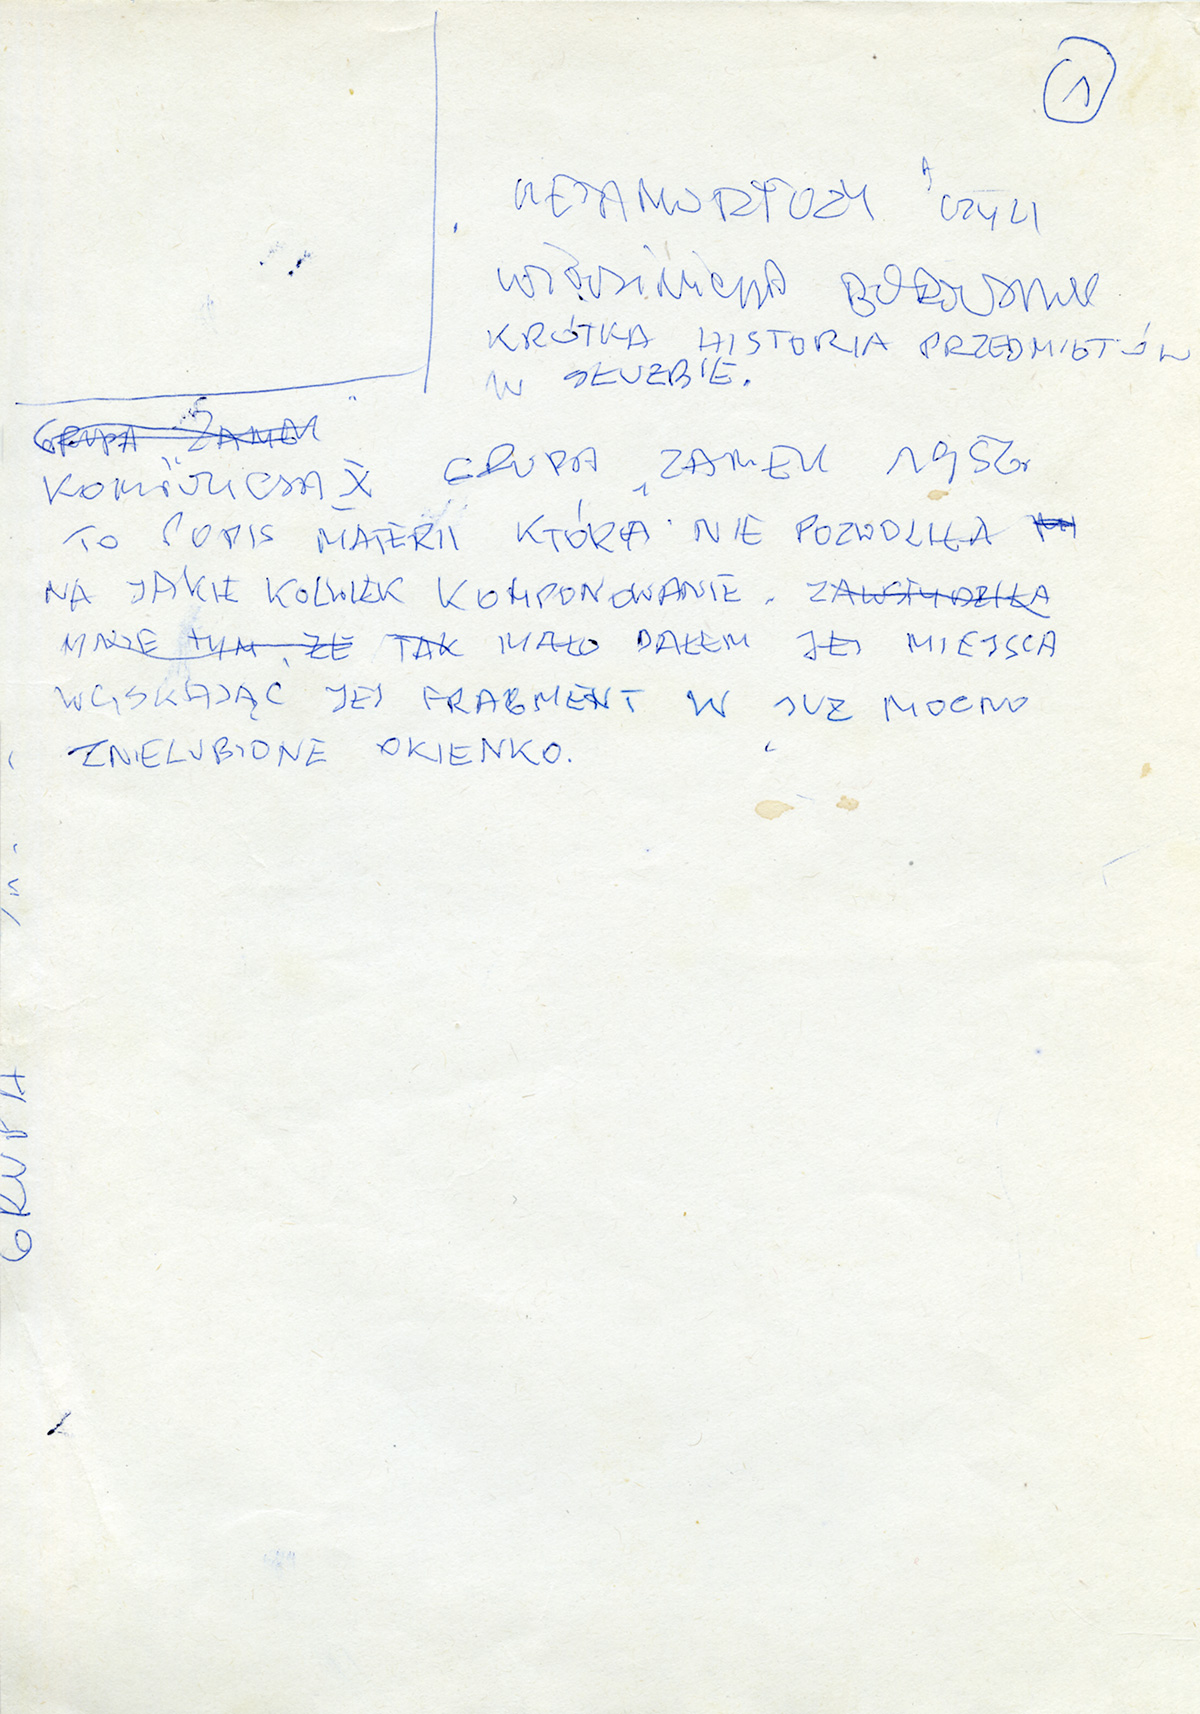 1
METAMORFOZY CZYLI
WŁODZIMIERZA BOROWSKI
KRÓTKA HISTORIA PRZEDMIOTÓW
W SŁUŻBIE.
GRUPA ZAMEK
X GRUPA "ZAMEK 195
TO POPIS MATERII KTÓRA NIE POZWOLIŁA
NA JAKIE KOLWIEK KOMPONOWANIE. ZAWSTYDZIŁA
MNIE TYM, ŻE TAK MAŁO DAŁEM JEJ MIEJSCA
WCISKAJĄC JEJ FRAGMENT W JUŻ MOCNO
ZNIELUBIONE OKIENKO.
GRUPA